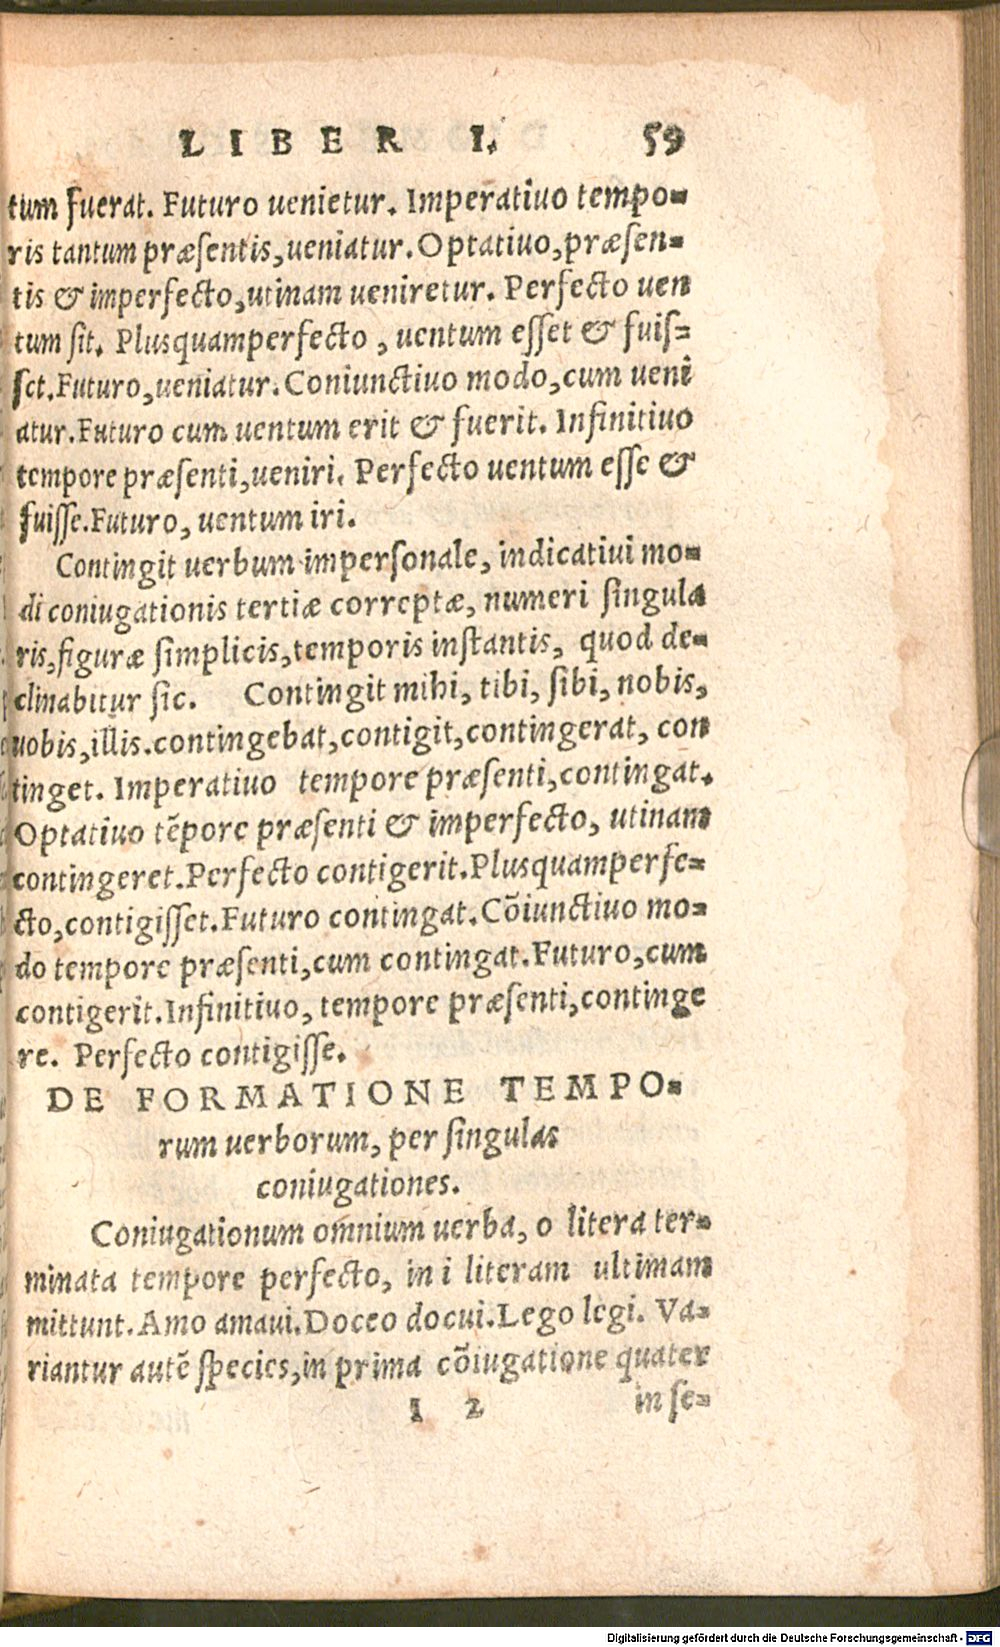 LIBER I. 59
tum fuerat. Futuro uenietur. Imperatiuo tempo-
ris tantum præsentis, ueniatur. Optatiuo, præsen-
tis & imperfecto, utinam ueniretur. Perfecto uen
tum sit. Plusquamperfecto, uentum esset & fuis-
set. Futuro, ueniatur. Coniunctiuo modo, cum ueni
atur. Futuro cum uentum erit & fuerit. Infinitiuo
tempore præsenti, ueniri. Perfecto uentum esse &
fuisse. Futuro, uentum iri.
Contingit uerbum impersonale, indicatiui mo-
di coniugationis tertiæ correptæ, numeri singula
ris, figuræ simplicis, temporis instantis, quod de-
clinabitur sic. Contingit mihi, tibi, sibi, nobis,
uobis, illis. contingebat, contigit, contingerat, con
tinget. Imperatiuo tempore præsenti, contingat.
Optatiuo tẽpore præsenti & imperfecto, utinam
contingeret. Perfecto contigerit. Plusquamperfe-
cto, contigisset. Futuro contingat. Cõiunctiuo mo-
do tempore præsenti, cum contingat. Futuro, cum
contigerit. Infinitiuo, tempore præsenti, continge
re. Perfecto contigisse.
DE FORMATIONE TEMPO-
rum uerborum, per singulas
coniugationes.
Coniugationum omnium uerba, o litera ter-
minata tempore perfecto, in i literam ultimam
mittunt. Amo amaui. Doceo docui. Lego legi. Va-
riantur autẽ species, in prima cõiugatione quater
I 2 in se-
Digitalisierung gefördert durch die Deutsche Forschungsgemeinschaft - DFG